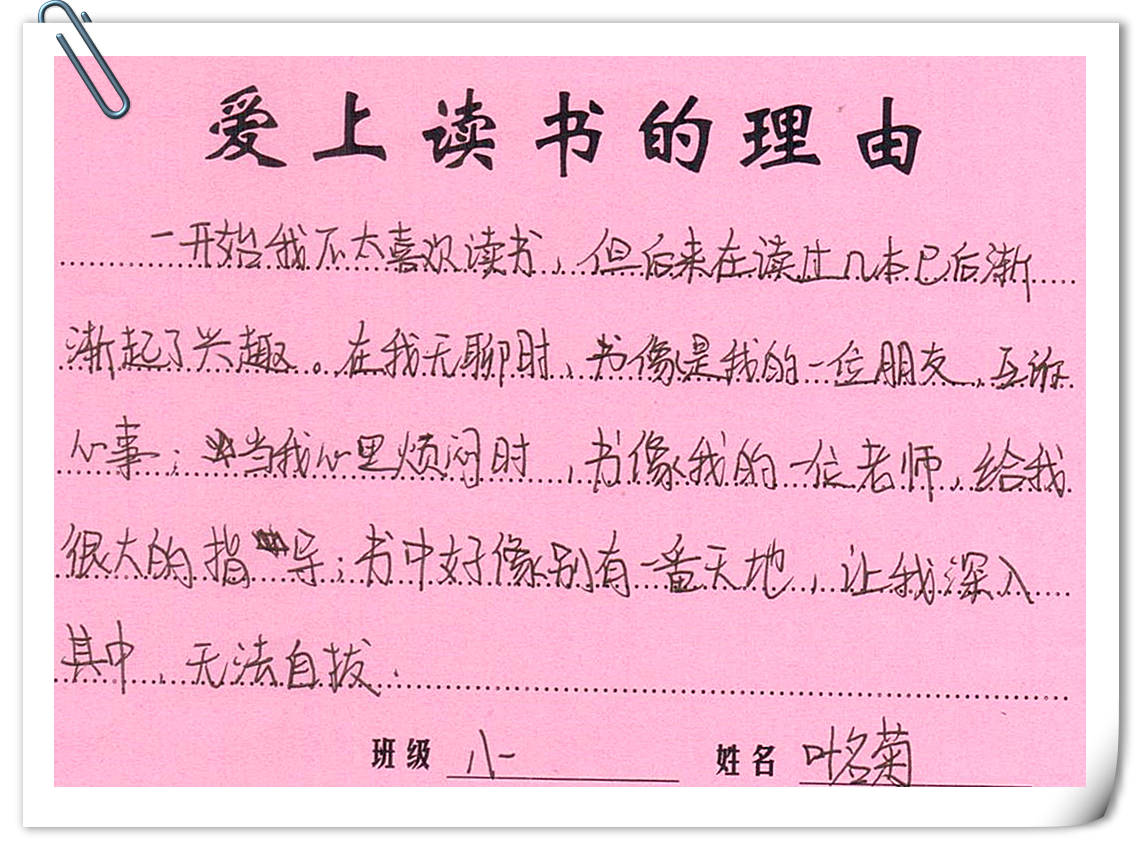 爱上读书的理由
一开始我不太喜欢读书，但后来在读过几本已后渐
渐起了兴趣。在我无聊时，书像是我的一位朋友，互诉
心事；当我心里烦闷时，书像我的一位老师，给我
很大的指导；书中好像别有一番天地，让我深入
其中，无法自拔.
班级 八一 姓名 叶名菊